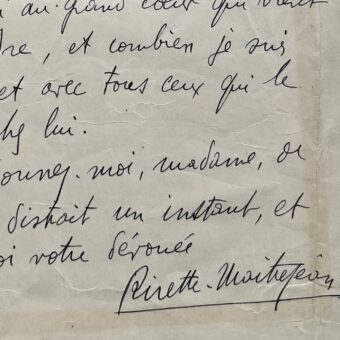 au grand cœur qui vient
dre, et combien je suis
et avec tous ceux qui le
chez lui.
donnez-moi, madame, de
distrait un instant, et
oi votre dévouée
Rirette-Maitrejean